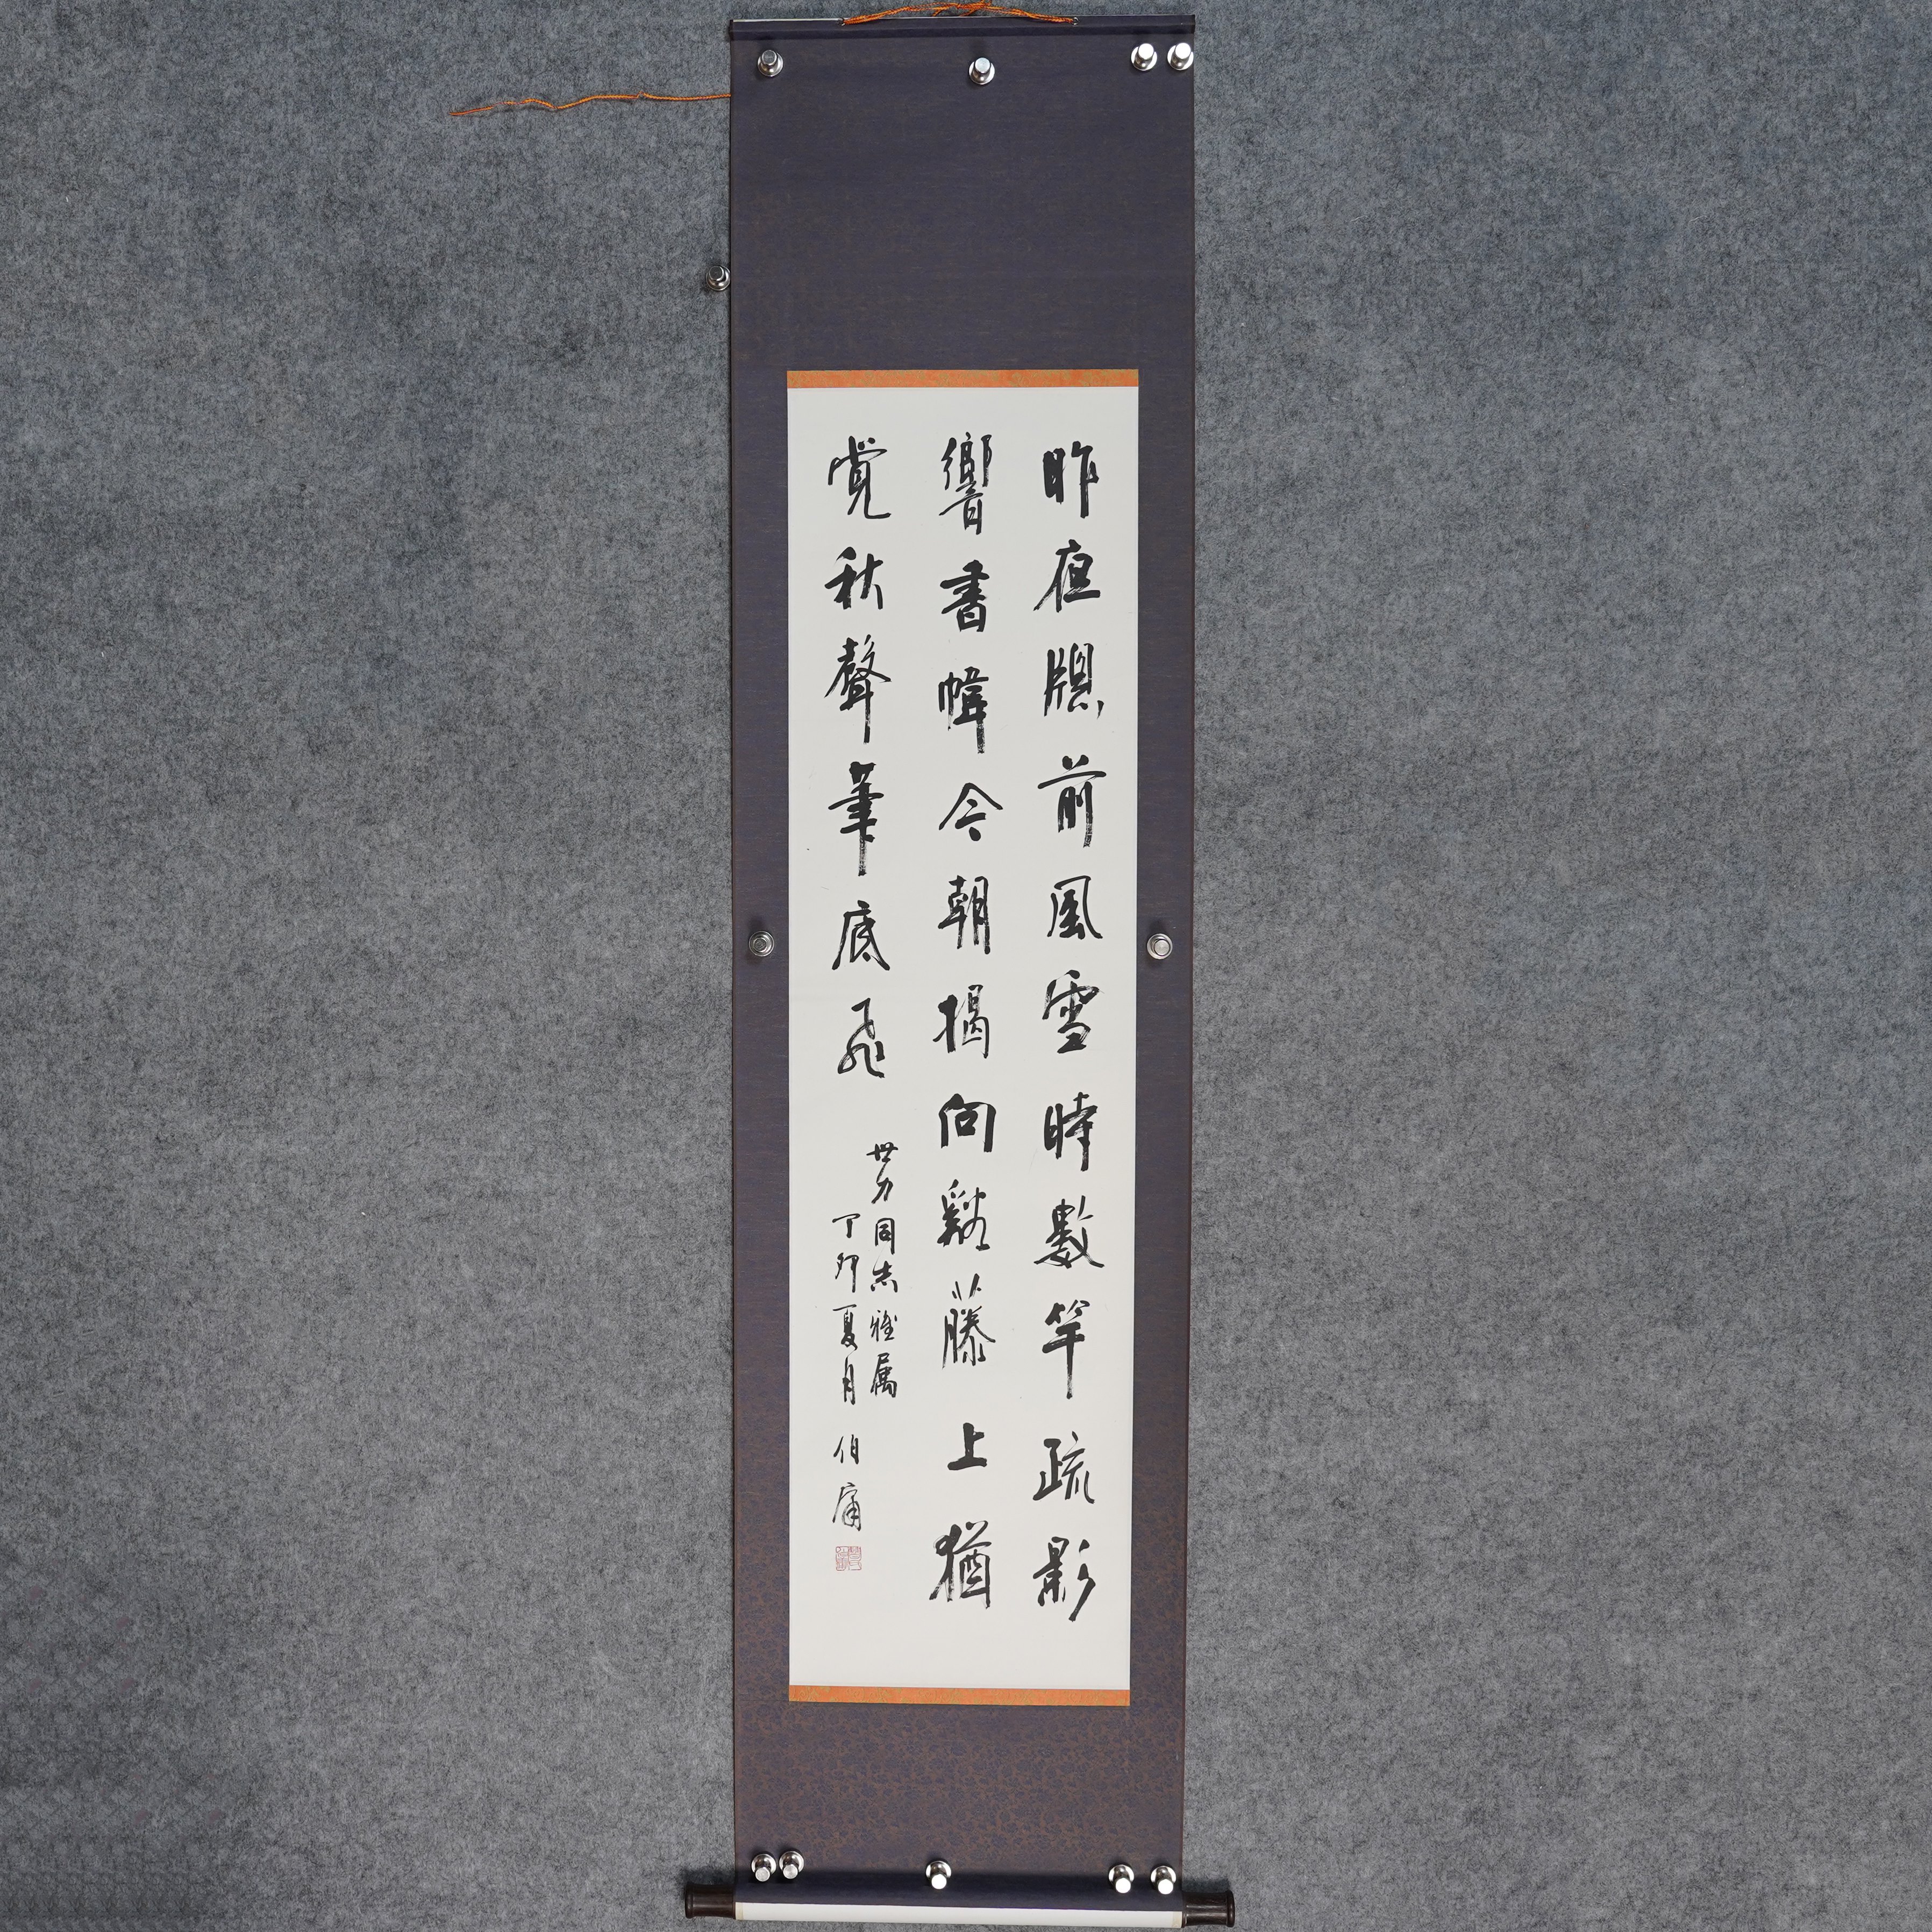 昨夜牕前風雪時數竿疏影
響書幃今朝搨向谿藤上猶
覺秋聲筆底飛
世力同志雅属
丁卯夏月 伯庸